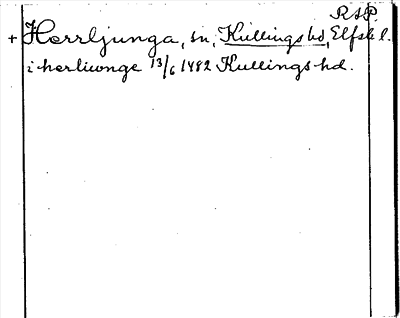 RAP.
+ Herrljunga, sn, Kullings hd, Elfsb l.
i herliunge 13/6 1482 Kullings hd.